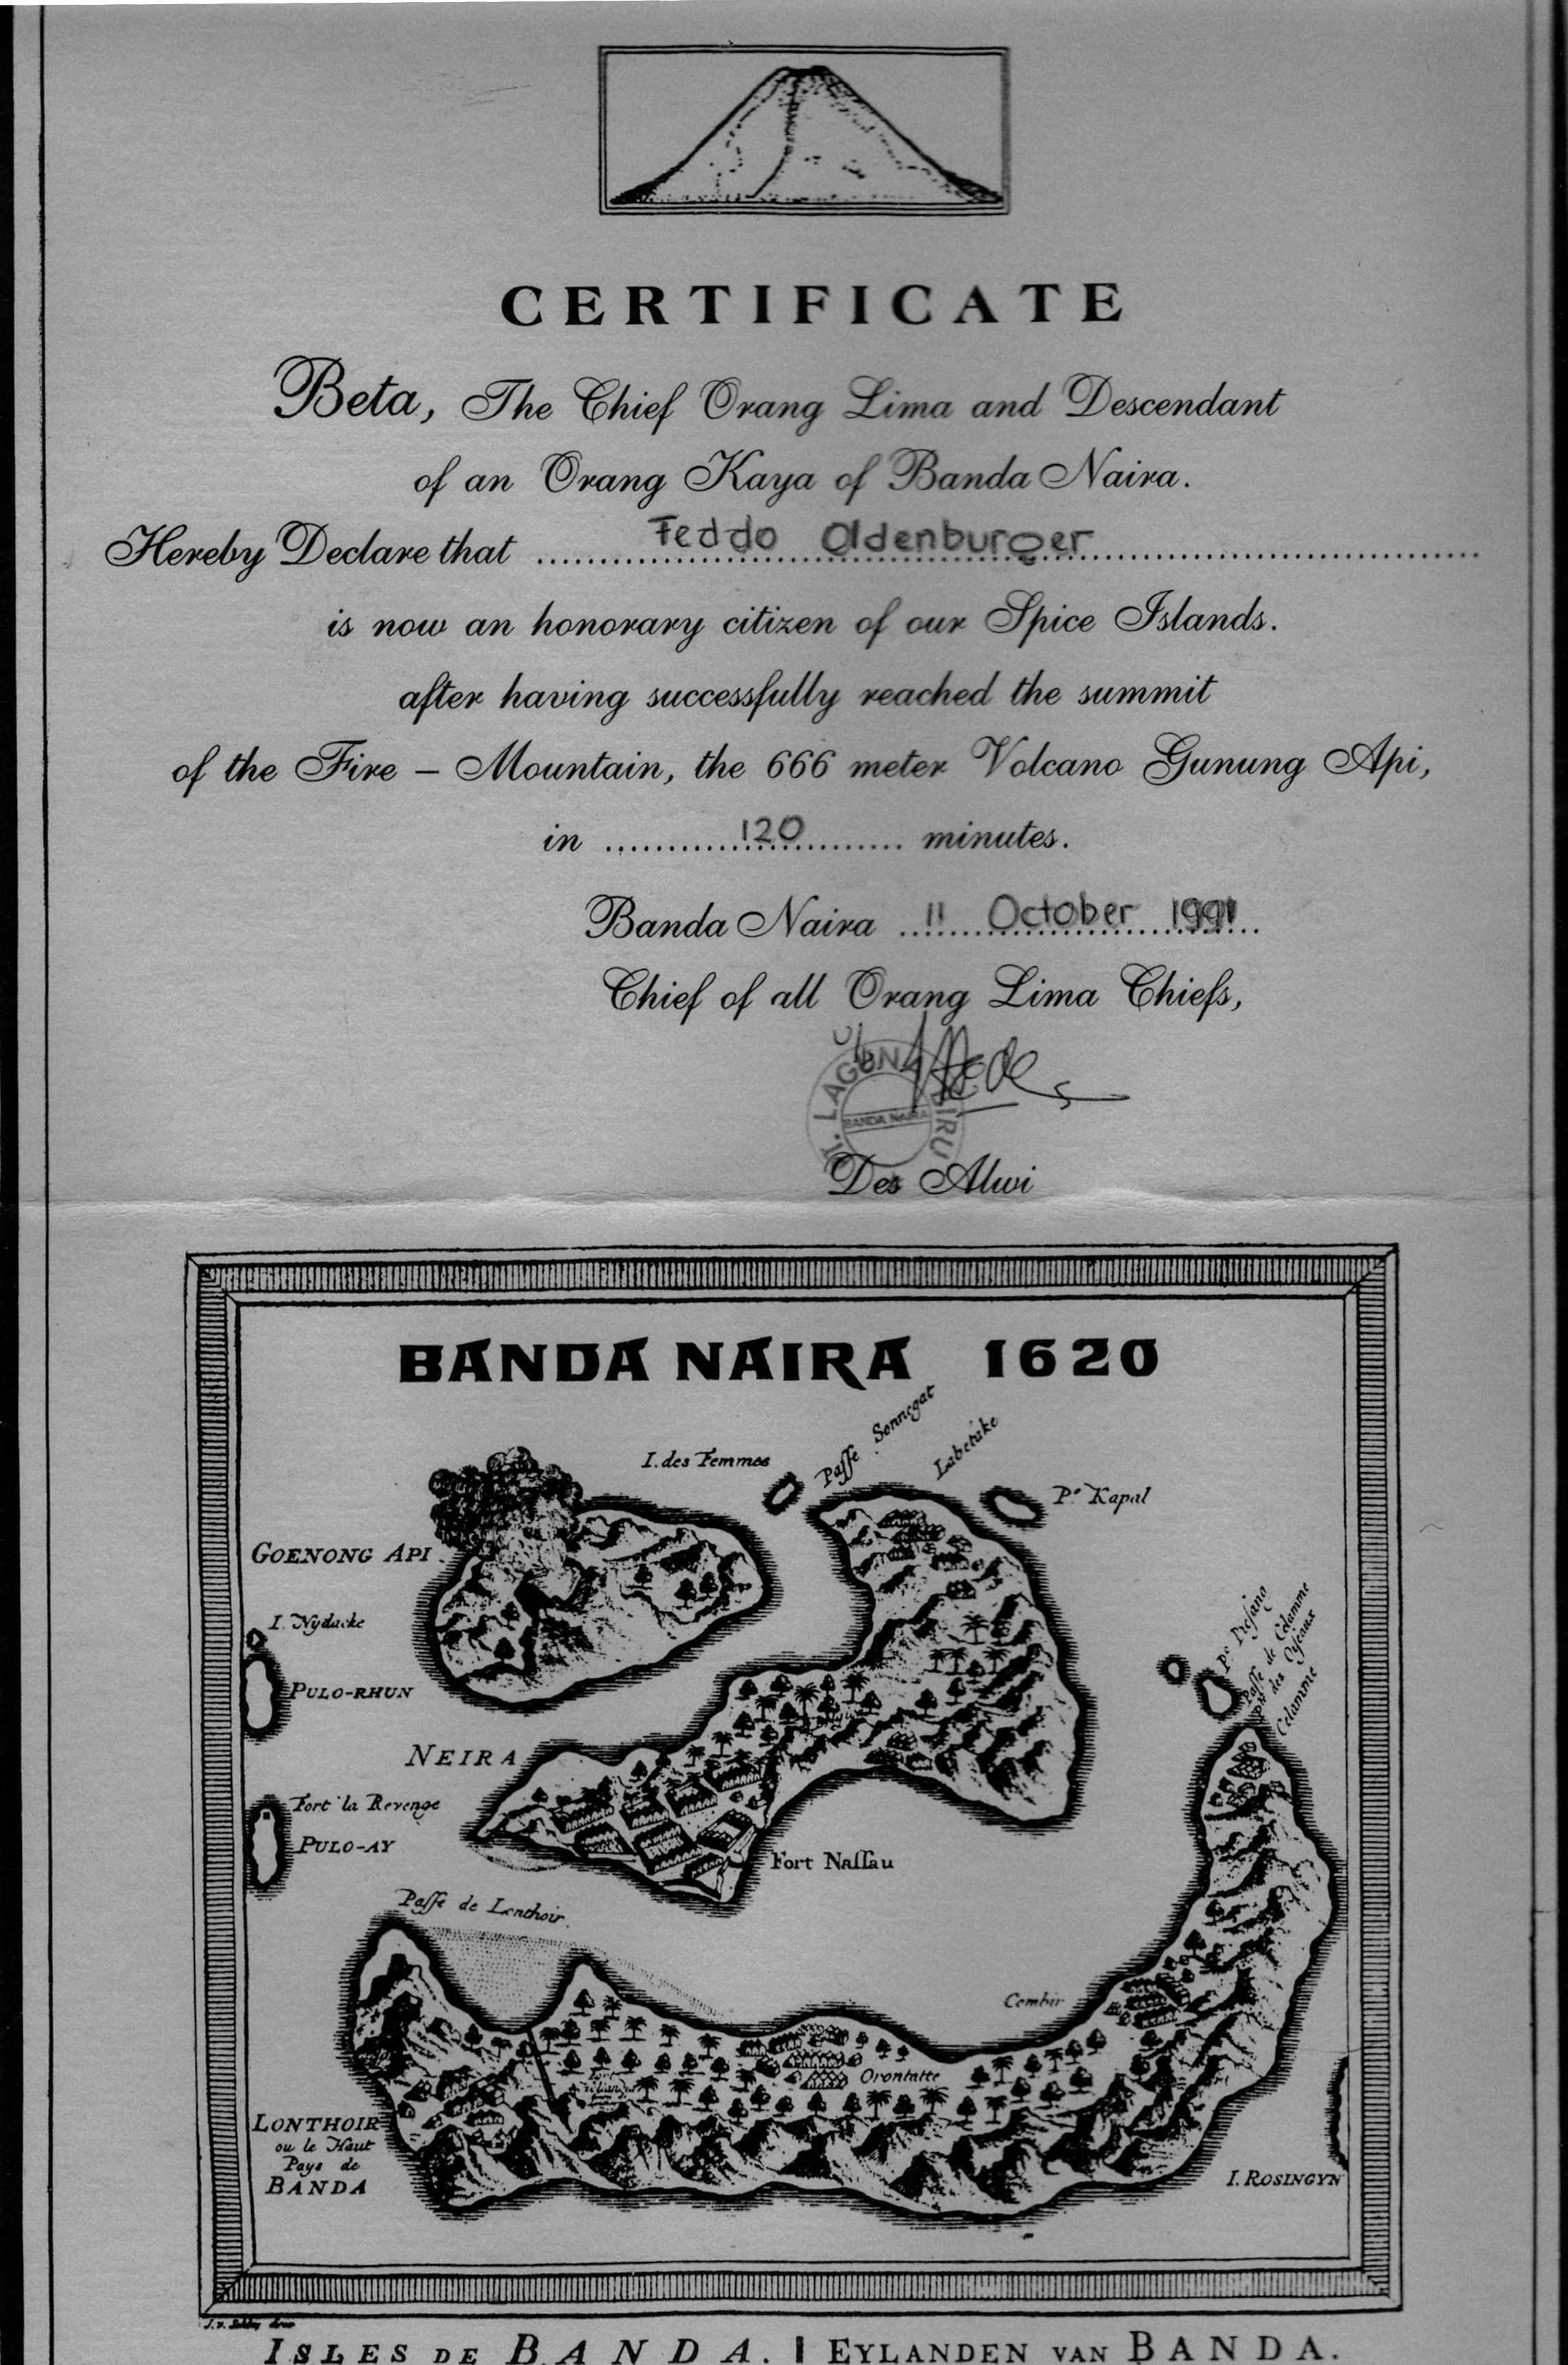 CERTIFICATE
Beta, The Chief Orang Lima and Descendant
of an Orang Kaya of Banda Naira.
Hereby Declare that Feddo Oldenburger
is now an honorary citizen of our Spice Islands.
after having successfully reached the summit
of the Fire – Mountain, the 666 meter Volcano Gunung Api,
in 120 minutes.
Banda Naira 11 October 1991
Chief of all Orang Lima Chiefs,
LAGUNA BIRU
BANDA NAIRA
Des Alwi
BANDA NAIRA 1620
I. des Femmes
Passe Sonnegat
Labetake
Po. Kapal
GOENONG API.
I. Nydacke
PULO-RHUN
Passe de Celamme
Celamme
NEIRA
Fort la Revenge
PULO-AY
Fort Nassau
Passe de Lonthoir.
Combir
Orontatte
LONTHOIR
ou le Haut
Pays de
BANDA
I. ROSINGYN
ISLES DE BANDA. | EYLANDEN VAN BANDA.